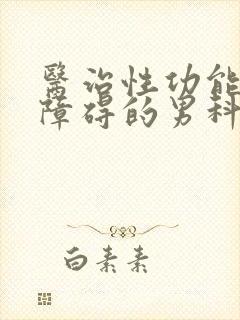 醫治性功能
障碍的男科
白素素